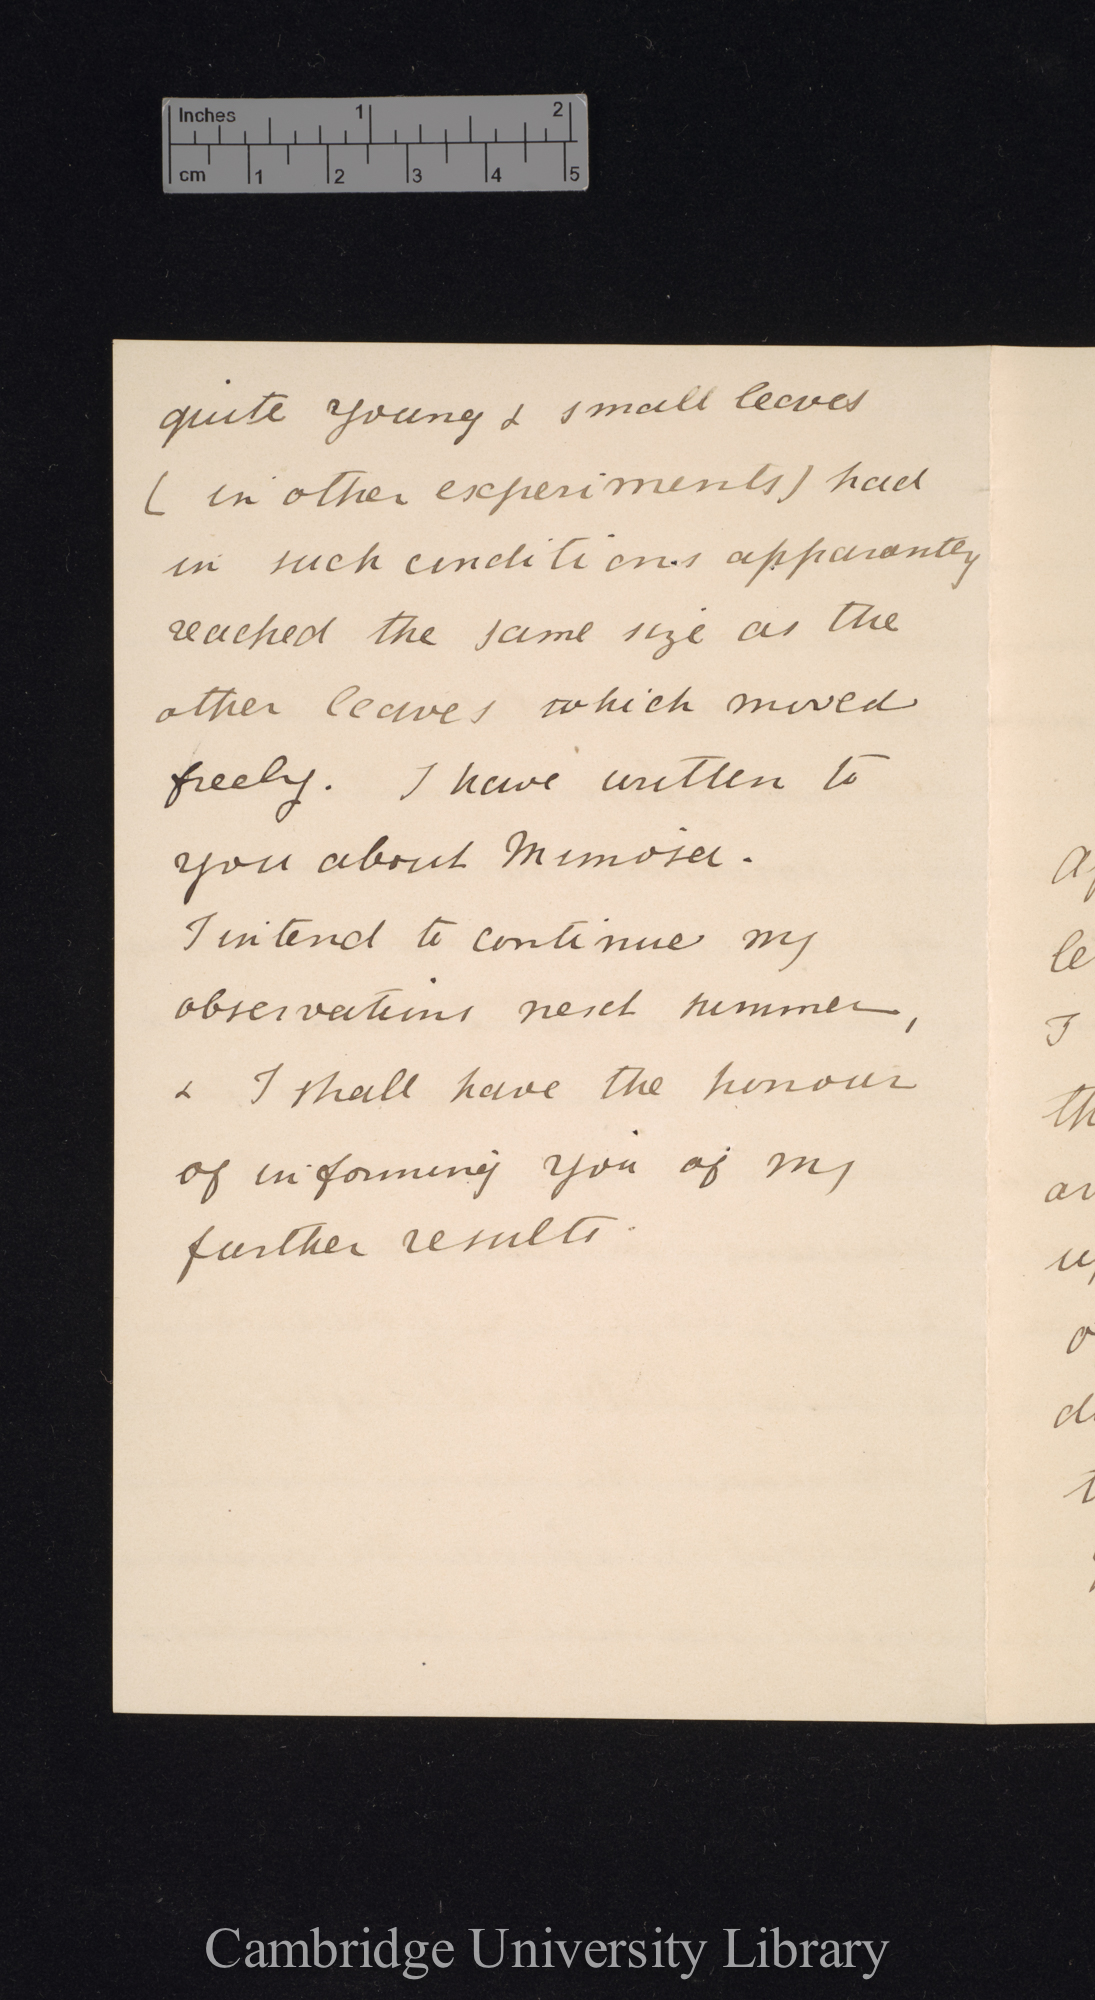 Inches 1 2
cm 1 2 3 4 5
quite young & small leaves
( in other experiments) had
in such conditions apparantly
reached the same size as the
other leaves which moved
freely. I have written to
you about Mimosa.
I intend to continue my
observations next summer,
& I shall have the honour
of informing you of my
further results.
le
I
th
o
t
Cambridge University Library